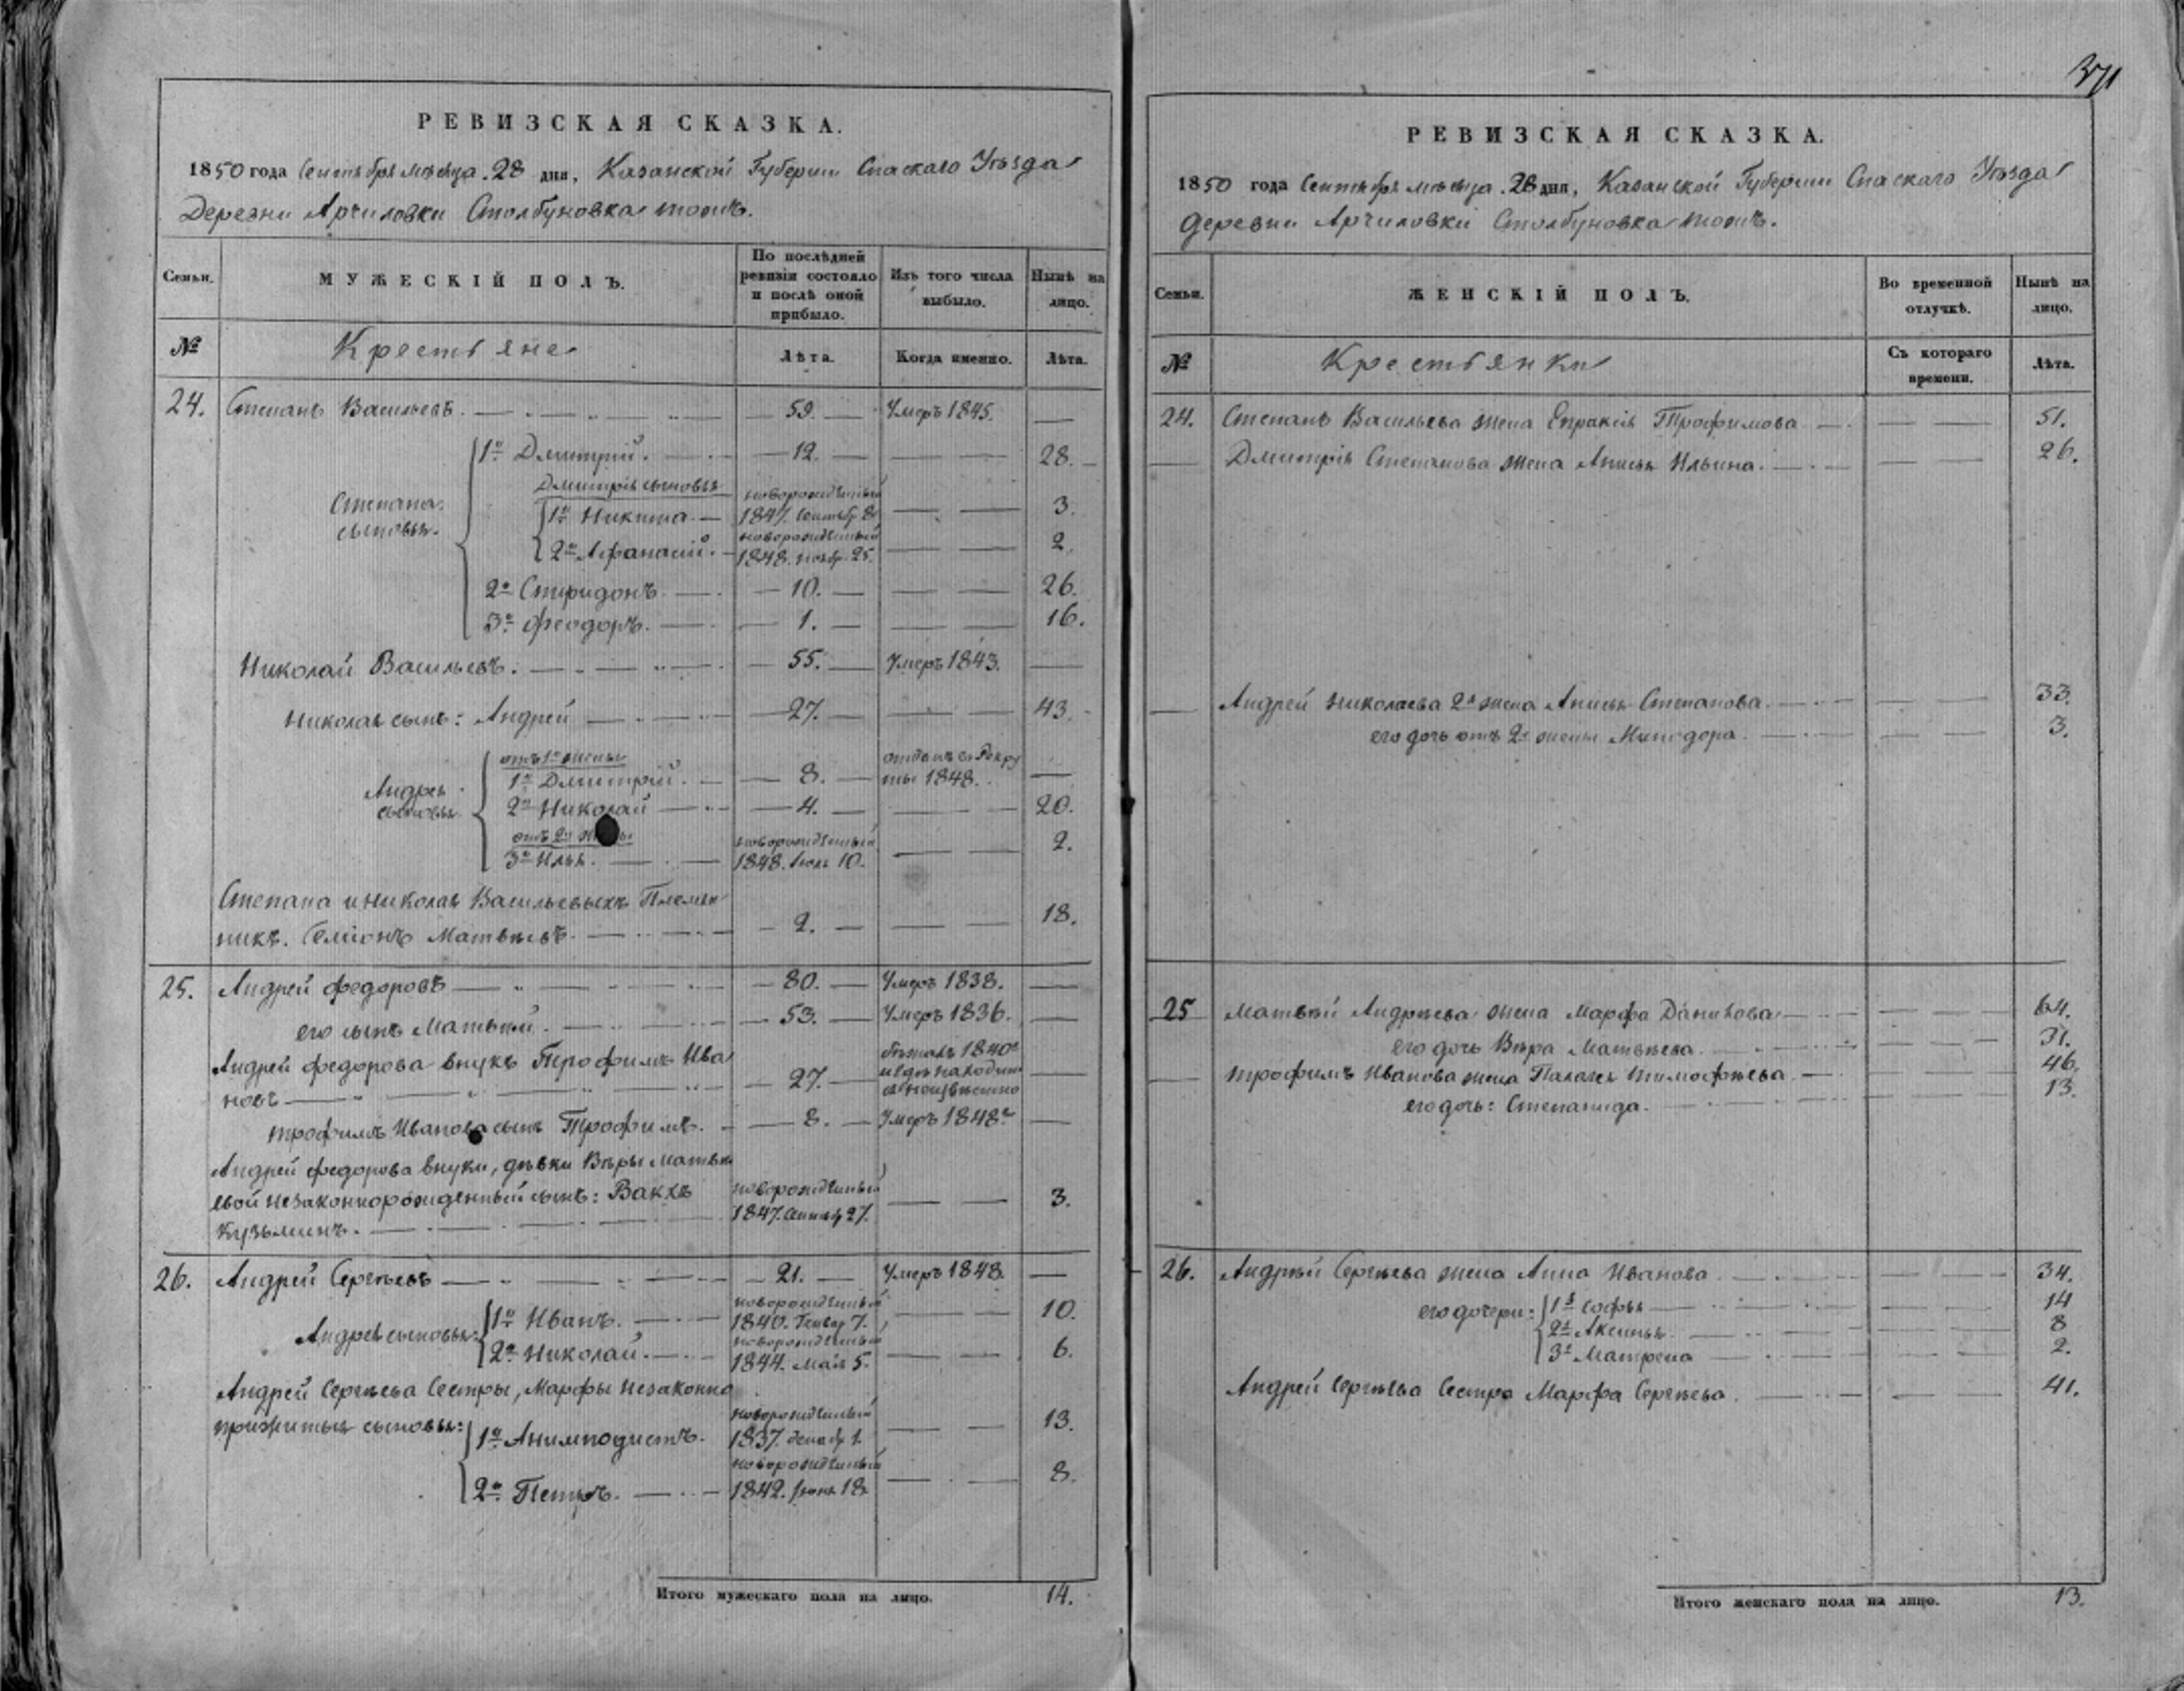 371
РЕВИЗСКАЯ СКАЗКА.
1850 года Сентября мѣсяца 28 дня, Казанской Губернии Спаскаго Уѣзда
Деревни Арчиловки Столбуновка тожъ.
Семьи.
МУЖЕСКІЙ ПОЛЪ.
По послѣдней ревизіи состояло и послѣ оной прибыло.
Изъ того числа выбыло.
Нынѣ на лицо.
№
Крестьяне
Лѣта.
Когда именно.
Лѣта.
24. Степанъ Васильевъ. 59. Умеръ 1845.
Степана сыновья.
1й Дмитрій. 12. 28.
Дмитрія сыновья
1й Никита новорожденный 1847. Сентябр 8 3.
2й Афанасій. новорожденный 1848. ноябр. 25. 2.
2й Спиридонъ. 10. 26.
3й Феодоръ. 1. 16.
Николай Васильевъ. 55. Умеръ 1843.
Николая сынъ: Андрей 27. 43.
Андрея сыновья
отъ 1й жены
1й Дмитрій. 8. отданъ в Рекруты 1848.
2й Николай 4. 20.
отъ 2й жены
3й Илья. новорожденный 1848. Июля 10. 2.
Степана и Николая Васильевыхъ Племян
никъ. Семіонъ Матвѣевъ. 2. 18.
25. Андрей Федоровъ 80. Умеръ 1838.
его сынъ Матвей. 53. Умеръ 1836.
Андрей Федорова внукъ Трофимъ Ива
новъ 27. бѣжалъ 1840г и гдѣ находит ся неизвѣстно
Трофимъ Иванова сынъ Трофимъ. 8. Умеръ 1848г
Андрей Федорова внуки, дѣвки Вѣры Матвѣ
евой незаконнорожденный сынъ: Вакхъ новорожденный 3.
Кузьминъ. 1847. 27.
26. Андрей Сергѣевъ 21. Умеръ 1848.
Андрея сыновья:
1й Иванъ. новорожденный 1840. Генвар 7. 10.
2й Николай. новорожденный 1844. Мая 5. 6.
Андрей Сергѣева Сестры, Марфы незаконно
прижитыя сыновья:
1й Анимподистъ. новорожденный 1837. декабр 1. 13.
2й Петръ. новорожденный 1842. Июня 18 8.
Итого мужескаго пола на лицо. 14.
РЕВИЗСКАЯ СКАЗКА.
1850 года Сентября мѣсяца 28 дня, Казанской Губернии Спаскаго Уѣзда
деревни Арчиловки Столбуновка тожъ.
Семьи.
ЖЕНСКІЙ ПОЛЪ.
Во временной отлучкѣ.
Нынѣ на лицо.
№
Крестьянки
Съ котораго времени.
Лѣта.
24. Степанъ Васильева жена Епраксія Трофимова 51.
Дмитрія Степанова жена Анисья Ильина. 26.
Андрей Николаева 2я жена Анисья Степанова. 33.
его дочь отъ 2й жены Минодора. 3.
25 Матвѣй Андрѣева жена Марфа Данилова 64.
его дочь Вѣра Матвѣева. 31.
Трофимъ Иванова жена Палагея Тимофѣева. 46.
его дочь: Степанида. 13.
26. Андрѣй Сергѣева жена Анна Иванова 34.
его дочери: 1я Софья 14
2я Аксинья. 8
3я Матрена 2.
Андрей Сергѣева Сестра Марфа Сергѣева. 41.
Итого женскаго пола на лицо. 13.